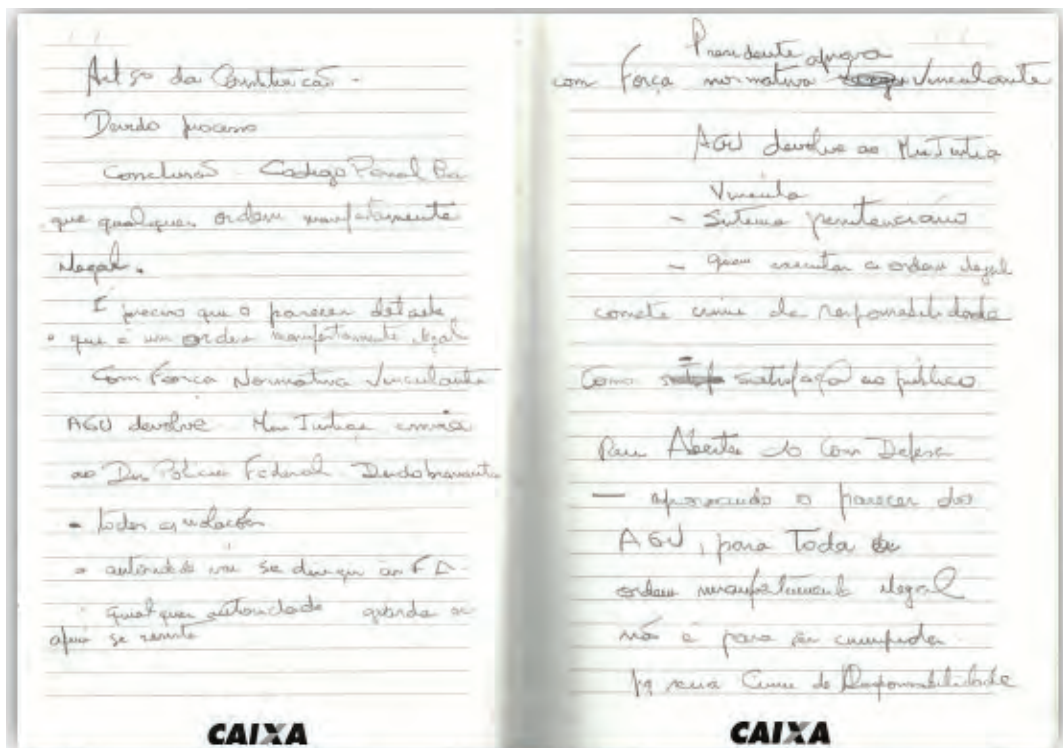 Art 5º da Constituição -
Devido processo
Conclusão - Codigo Penal
que qualquer ordem manifestamente
ilegal.
É preciso que o parecer detalhe
o que é um ordem manifestamente ilegal
Com Força Normativa Vinculante
AGU devolve Min Justiça
ao Dir Polícia Federal
- todas as relações
se dirigir
qualquer autoridade
se
CAIXA
Presidente aprova
com Força normativa Vinculante
AGU devolve ao Min Justiça
Vincula
- Sistema penitenciário
- quem executar a ordem ilegal
comete crime de responsabilidade
Como satisfação ao público
Com Defesa
- aprovando o parecer da
AGU, para Toda
ordem manifestamente ilegal
não é para ser cumprida
seria Crime de Responsabilidade
CAIXA